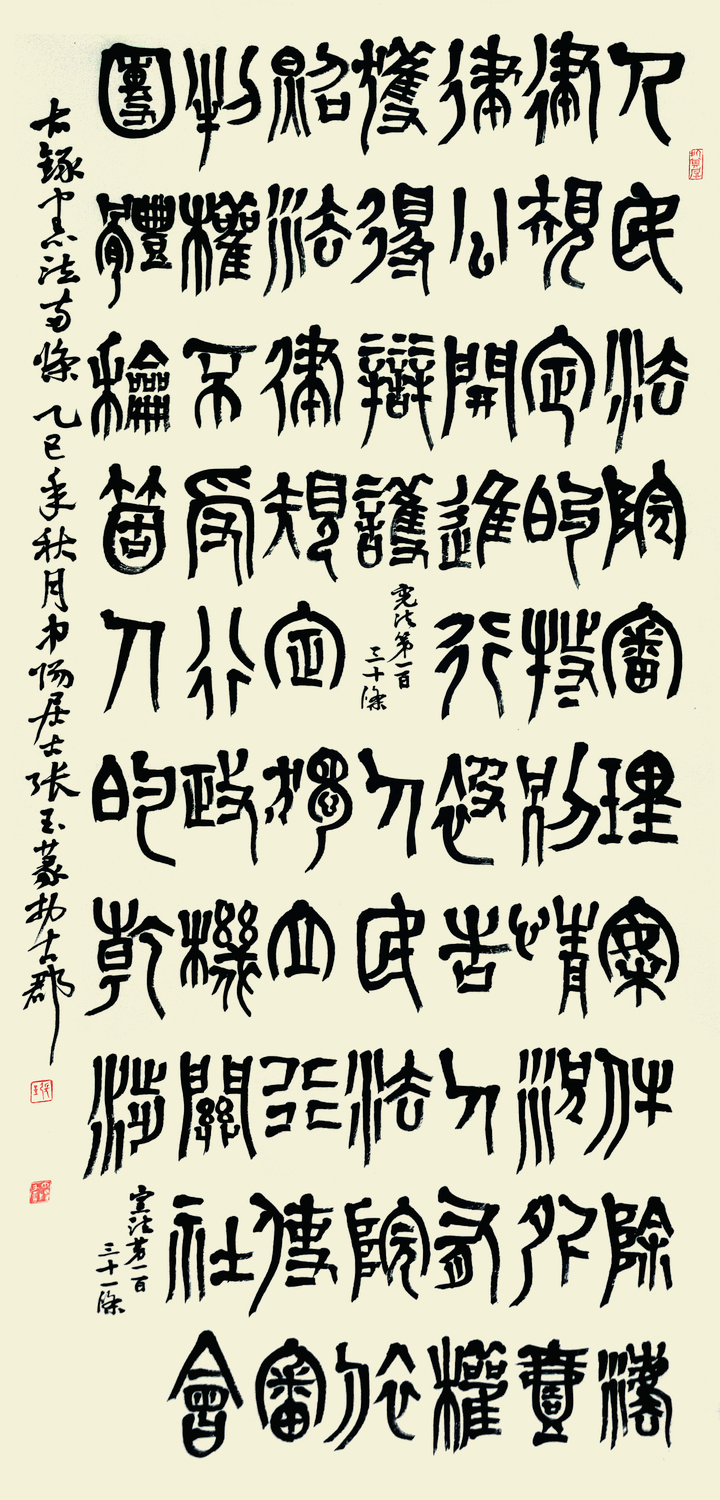 人民法院審理案件除灋
律規定的特別情況外壹
律公開進行被告人有權
獲得辯護
憲法第一百
三十條
人民法院依
照法律規定獨立行使審
判權不受行政機關社會
團體龢箇人的乾涉
憲法第一百
三十一條
右錄憲法兩條乙巳年秋月居士张玉篆於古郡